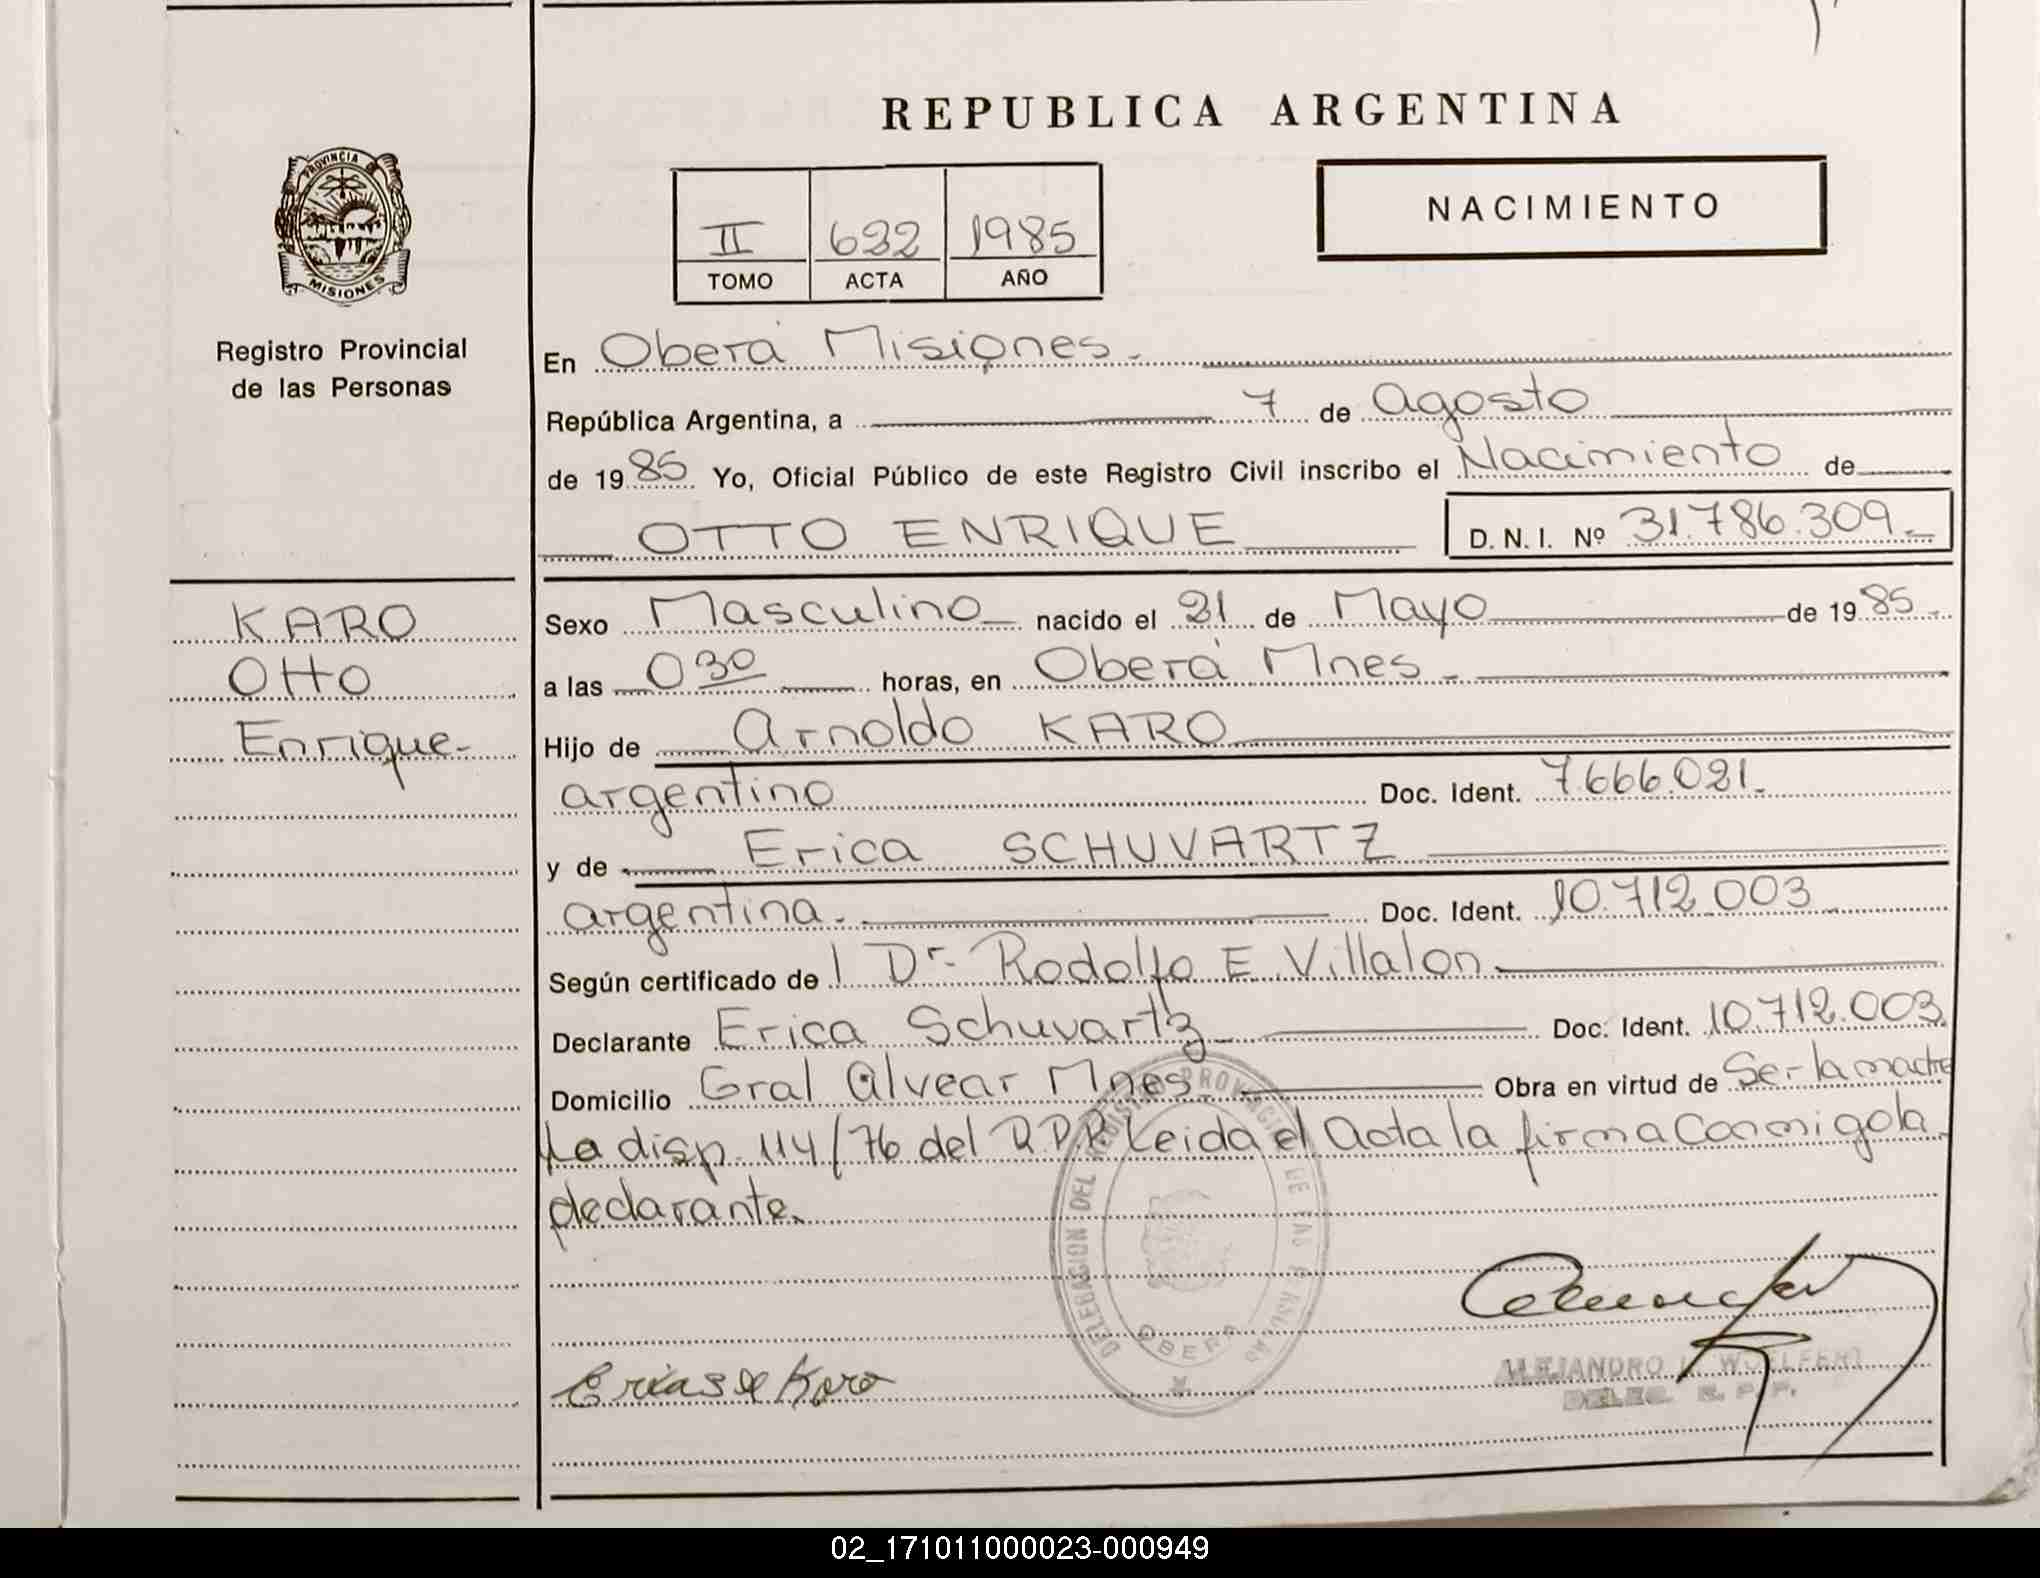 REPUBLICA ARGENTINA
PROVINCIA DE
MISIONES
Registro Provincial
de las Personas
II 622 1985
TOMO ACTA AÑO
NACIMIENTO
En Oberá Misiones.
República Argentina, a 7 de Agosto
de 1985 Yo, Oficial Público de este Registro Civil inscribo el Nacimiento de
OTTO ENRIQUE D. N. I. Nº 31.786.309.
KARO
Otto
Enrique.
Sexo Masculino nacido el 21 de Mayo de 1985.
a las 0 30 horas, en Oberá Mnes.
Hijo de Arnoldo KARO
argentino Doc. Ident. 7.666.021.
y de Erica SCHUVARTZ
argentina. Doc. Ident. 10.712.003
Según certificado de l Dr. Rodolfo E. Villalon.
Declarante Erica Schuvartz Doc. Ident. 10.712.003
Domicilio Gral Alvear Mnes. Obra en virtud de Ser la madre
La disp. 114/76 del R.P.P. Leida el Acta la firma Conmigo la
declarante.
DELEGACION DEL REGISTRO PROVINCIAL DE LAS PERSONAS
OBERA
ALEJANDRO WOELFERT
DELEG. R. P. P.
02_171011000023-000949